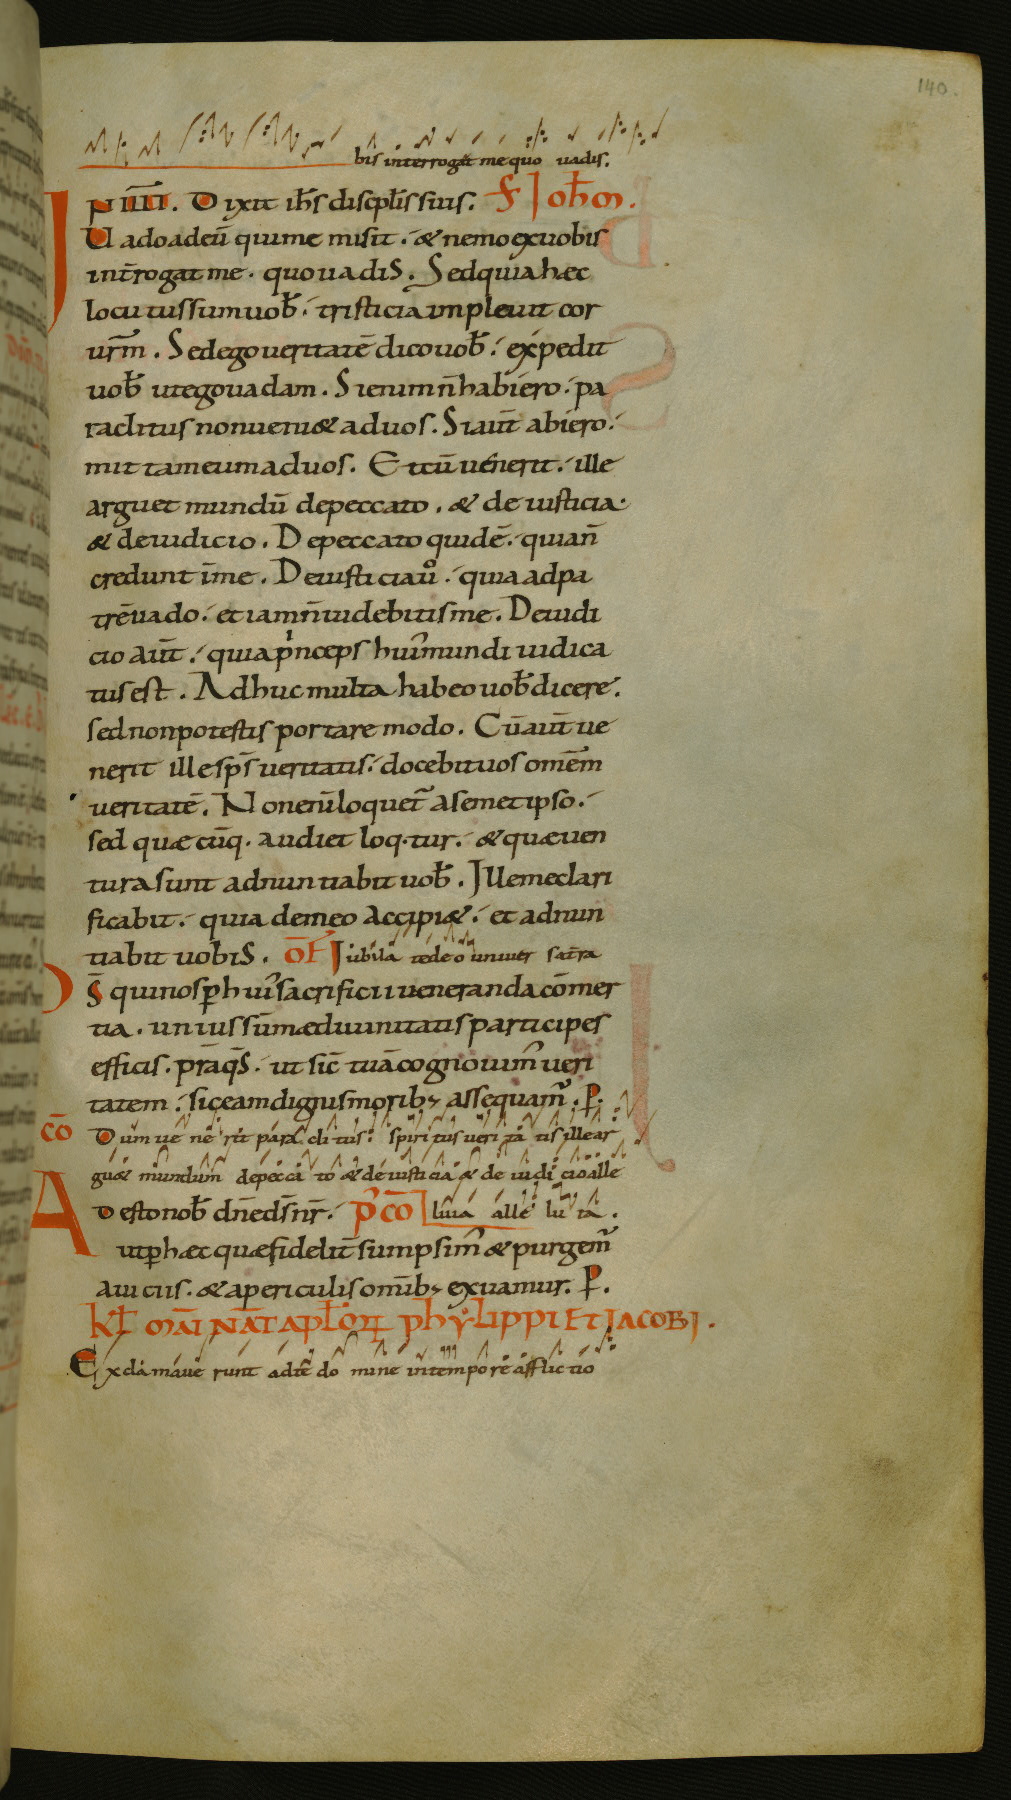 140.
bis interrogat me quo uadis.
IN illī. Dixit ih̅s discipl̅is suis. S̅ Joh̅m.
Uado ad eū qui me misit. & nemo ex uobis
int̄rogat me. quo uadis. Sed quia hæc
locutus sum uob̅. tristicia impleuit cor
ur̅m. Sed ego ueritatē dico uob̅. expedit
uob̅ ut ego uadam. Si enim n̅ habiero. pa
raclitus non ueni& ad uos. Si aut̅ abiero.
mittam eum ad uos. Et cū uenerit. ille
arguet mundū de peccato. & de iusticia.
& de iudicio. De peccato quidē. quia n̅
credunt in̄ me. De iusticia uº. quia ad pa
trē uado. et iam n̅ uidebitis me. De iudi
cio aut̅. quia princeps hui᾽ mundi iudica
tus est. Adhuc multa habeo uob̅ dicere.
sed non potestis portare modo. Cū aut̅ ue
nerit ille sp̅s ueritatis. docebit uos omēm
ueritatē. Non enī loquet᷑ a semetipso.
sed quæcūq. audiet loq.tur. & quæ uen
tura sunt adnuntiabit uob̅. Ille me clari
ficabit. quia de meo accipi&. et adnun
tiabit uobis. OF̅ Iubilate deo uniuersa t̅ra
D̅S qui nos p̱ hui᾽ sacrificii ueneranda cōmer
tia. unius sūmæ diuinitatis participes
efficis. pr̅a q̅s. ut sic̅ tuā cognouim᾽ ueri
tatem. sic eam dignis morib; assequam᷑. P̱.
CŌ Dum uenerit paraclitus spiritus ueritatis ille ar
gu& mundum de peccato & de iusticia & de iudicio alle
Adesto nob̅ dn̅e ds̅ nr̅. P᾽ CŌ luia alleluia.
ut p̱ hæc quæ fidelit̅ sumpsim᾽ & purgem᷑
a uiciis. & a periculis omīb; exuamur. P̱.
Kl̅ MAI NAT̅ APL̅ORꝜ PHYLIPPI ET IACOBI.
Exclamauerunt ad te domine in tempore afflictio